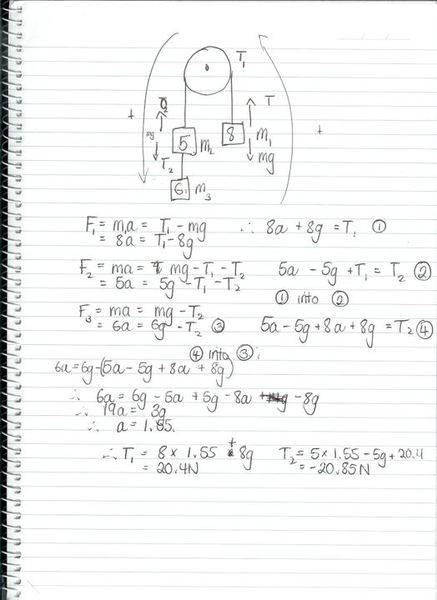 T₁
T
+
5 m₂
8 m₁
+
T₂
mg
6 m₃
F₁ = m₁a = T₁ - mg ∴ 8a + 8g = T₁ ①
= 8a = T₁ - 8g
F₂ = ma = mg - T₁ - T₂ 5a - 5g + T₁ = T₂ ②
= 5a = 5g - T₁ - T₂
① into ②
F₃ = ma = mg - T₂
= 6a = 6g - T₂ ③ 5a - 5g + 8a + 8g = T₂ ④
④ into ③ :
6a = 6g - (5a - 5g + 8a + 8g)
∴ 6a = 6g - 5a + 5g - 8a - 8g
∴ 19a = 3g
∴ a = 1.55.
∴ T₁ = 8 × 1.55 + 8g T₂ = 5 × 1.55 - 5g + 20.4
= 20.4N = -20.85N